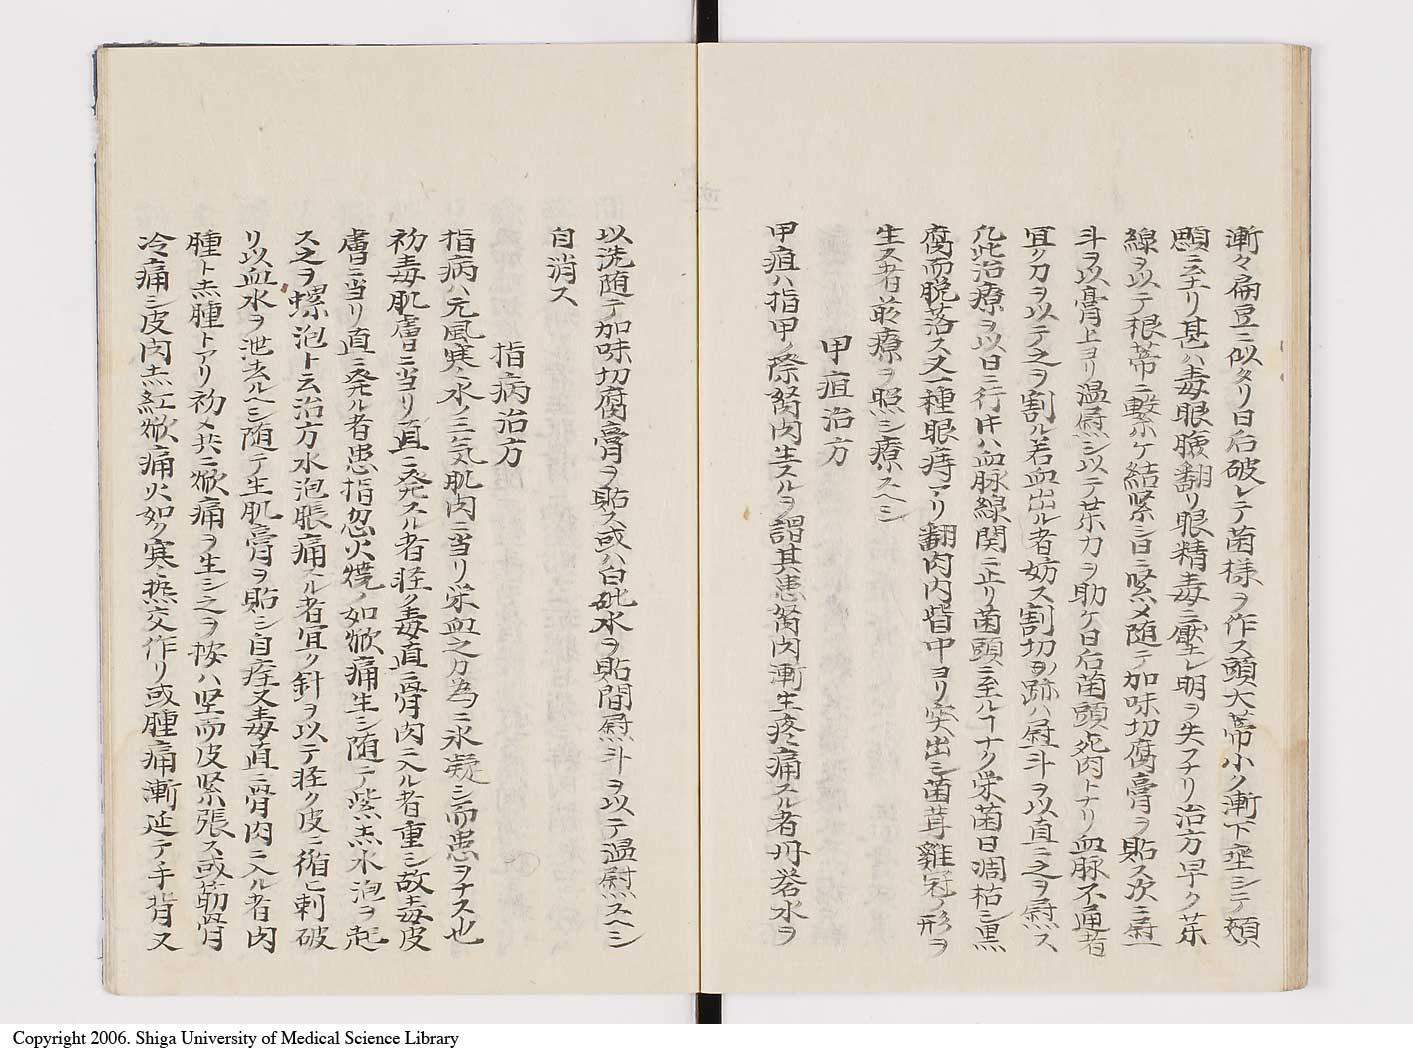 漸々扁豆ニ似タリ日后破レテ菌様ヲ作ス頭大蒂小ク漸下垂シテ頬
顋ニ至リ甚ハ毒眼瞼翻リ眼精毒ニ壓レ明ヲ失フナリ治方早ク苿
線ヲ以テ根蒂ニ繋ケ結緊シ日ニ緊メ随テ加味切腐膏ヲ貼ス次ニ熨
斗ヲ以膏上ヨリ温熨シ以テ苿力ヲ助ケ日后菌頭死肉トナリ血脉不通者
宜ク刀ヲ以テ之ヲ割ル若血出ル者妨ス割切ヲ跡ハ熨斗ヲ以直ニ之ヲ熨ス
凡此治療ヲ以日ニ行片ハ血脉線関ニ止リ菌頭ニ至ルヿナク栄菌日凋枯シ黒
腐而脱落ス又一種眼痔アリ翻肉内眥中ヨリ突出シ菌茸雞冠ノ形ヲ
生ス者前療ヲ照シ療スヘシ
甲疽治方
甲疽ハ指甲ノ際胬肉生スルヲ謂其患胬肉漸生疼痛スル者丹礬水ヲ
以洗随テ加味切腐膏ヲ貼ス或ハ白砒水ヲ貼間熨斗ヲ以テ温熨スヘシ
自消ス
指病治方
指病ハ元風寒水ノ三気肌肉ニ当リ栄血之カ為ニ氷凝シ而患ヲナス也
初毒肌膚ニ当リ直ニ発スル者軽ク毒直ニ骨肉ニ入ル者重シ故毒皮
膚ニ当リ直ニ発ル者患指忽火焼ノ如焮痛生シ随テ紫赤水泡ヲ起
ス之ヲ螺泡ト云治方水泡脹痛スル者宜ク針ヲ以テ軽ク皮ニ循ヒ刺破
リ以血水ヲ泄去ルヘシ随テ生肌膏ヲ貼シ自痊又毒直ニ骨肉ニ入ル者肉
腫ト赤腫トアリ初メ共ニ焮痛ヲ生シ之ヲ按ハ坚而皮緊張ス或筋骨
冷痛シ皮肉赤紅焮痛火如ク寒熱交作リ或腫痛漸延テ手背又
Copyright 2006. Shiga University of Medical Science Library